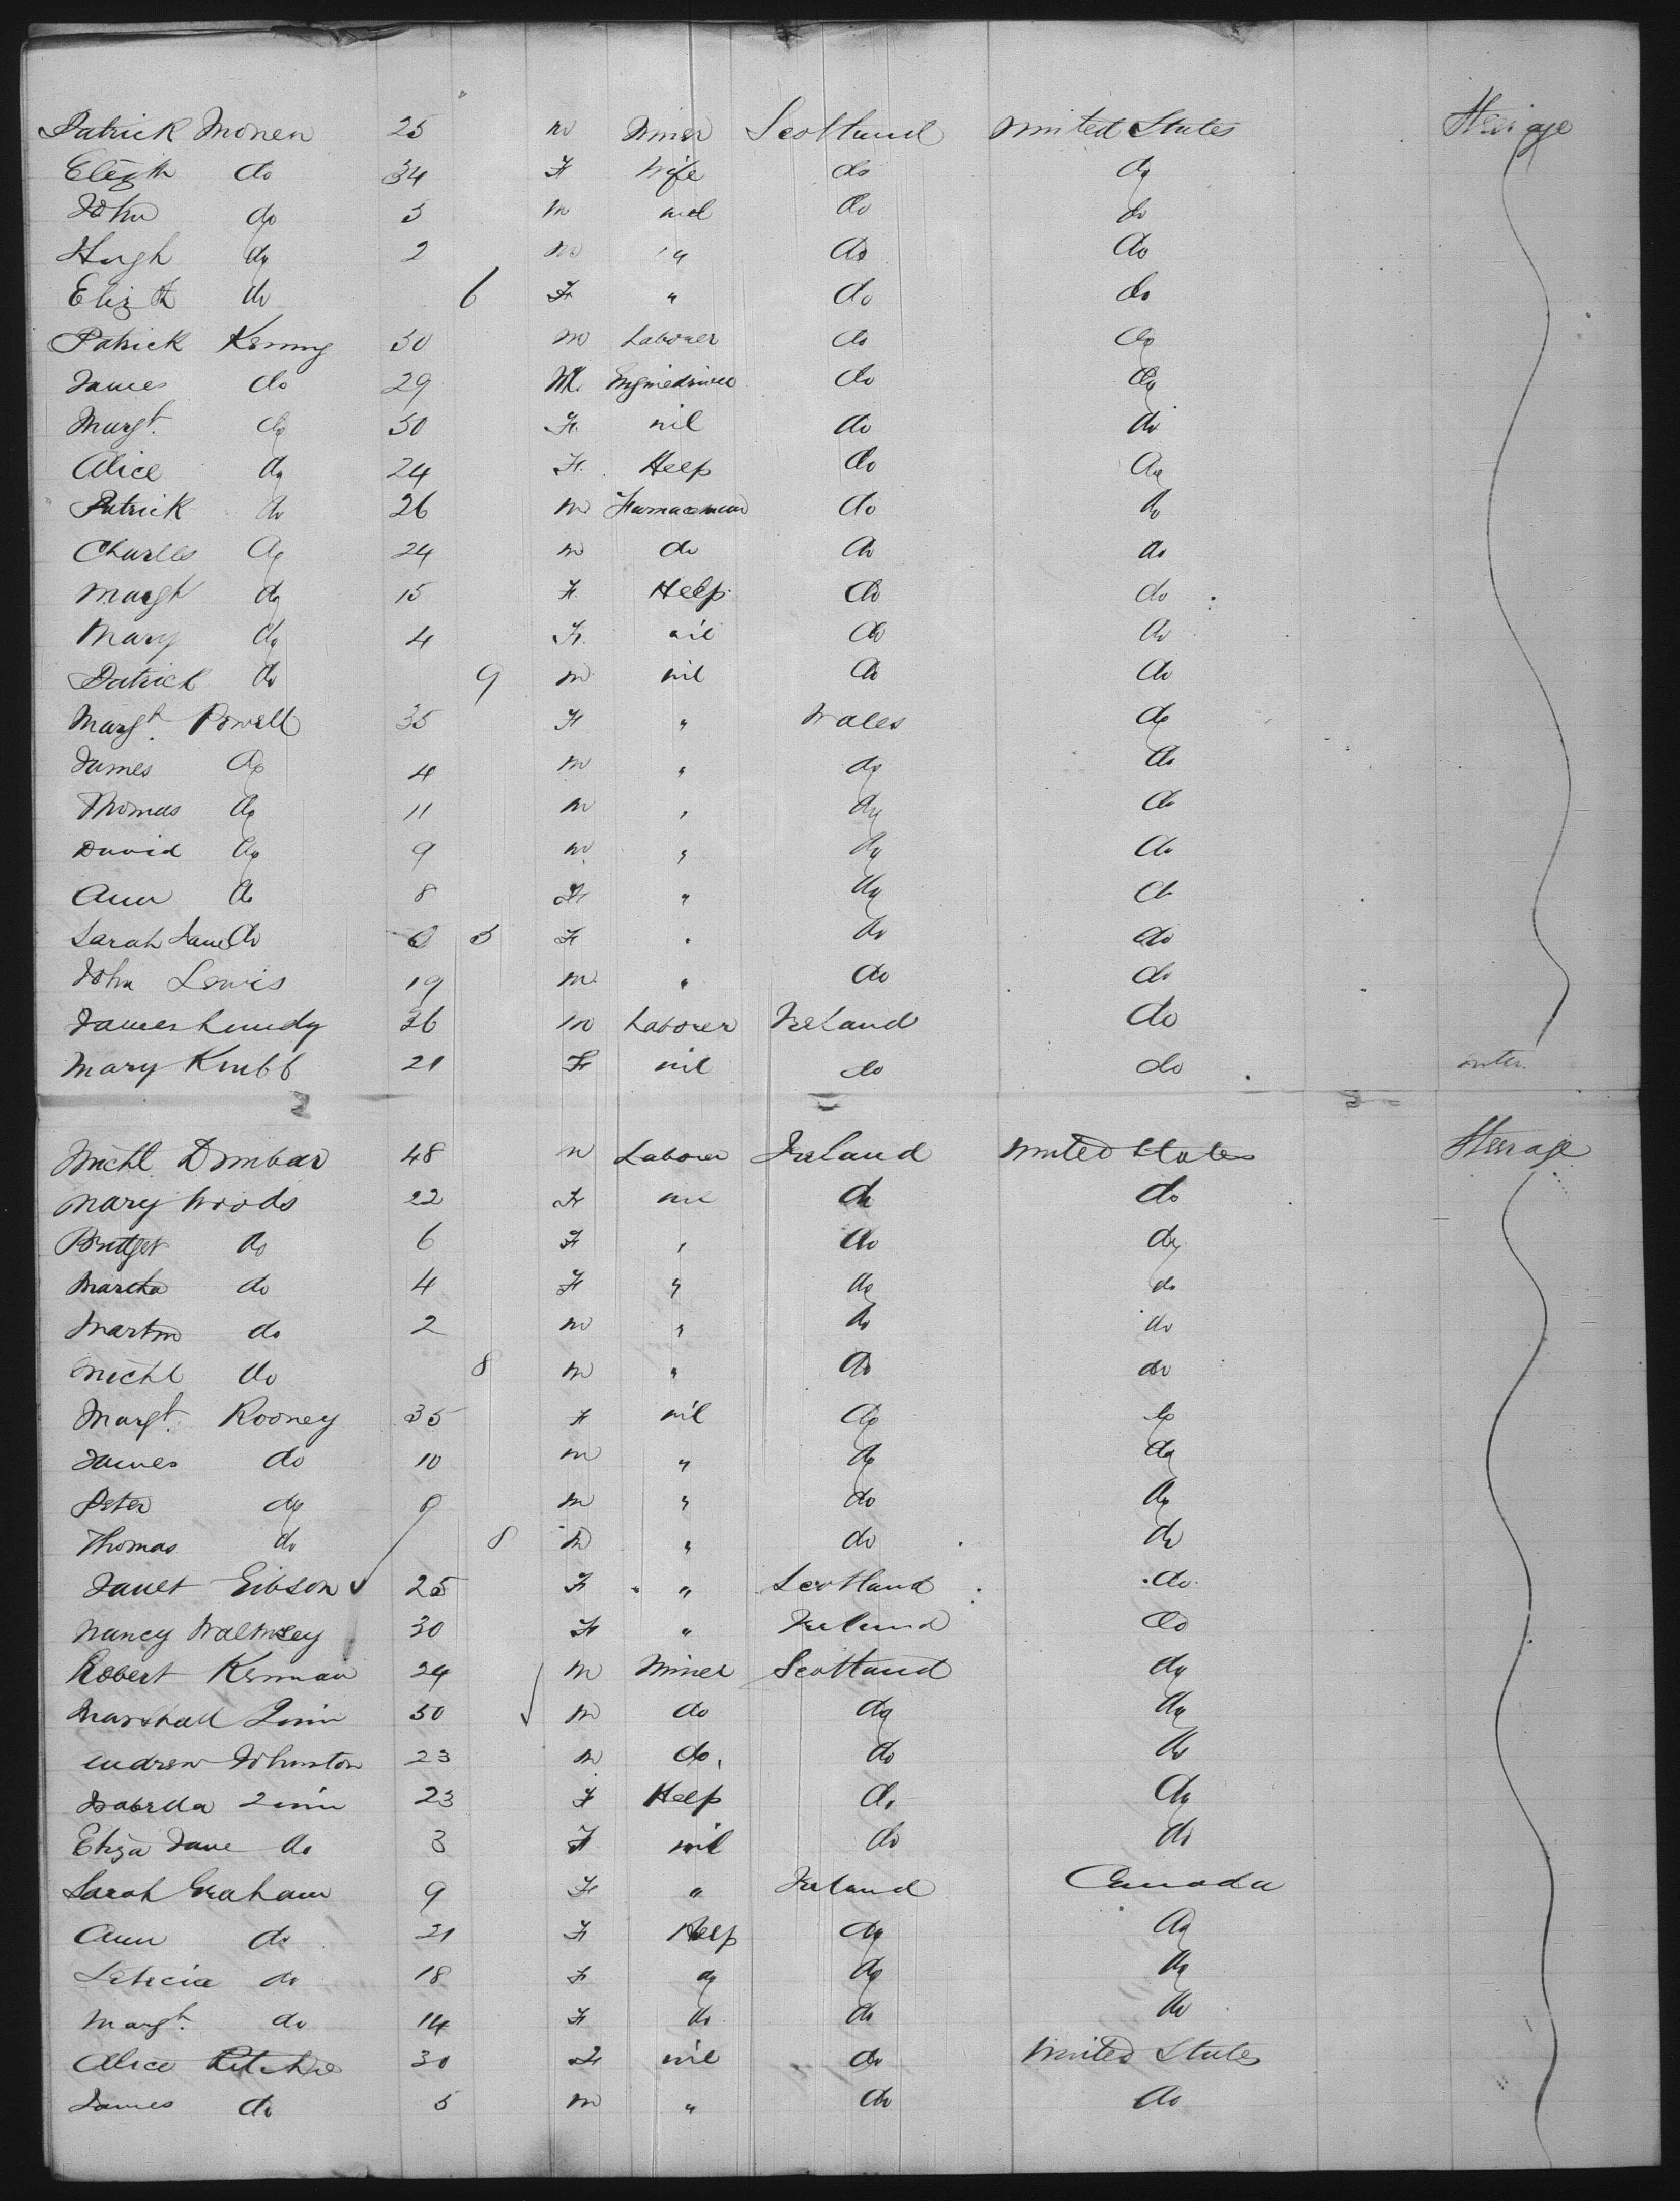 Patrick Monen 25 m Miner Scotland United States Steerage
Elizth do 34 F Wife do do
John do 3 m nil do do
Hugh do 2 m " do do
Elizth do 6 F " do do
Patrick Kenny 30 m Laborer do do
James do 29 M. Enginedriver do do
Margt. do 50 F. nil do do
Alice do 24 F. Help do do
Patrick do 26 m Furnaceman do do
Charles do 24 m do do do
Margt do 15 F. Help do do
Mary do 4 F. nil do do
Patrick do 9 m nil do do
Margt. Powell 35 F " Wales do
James do 4 m " do do
Thomas do 11 m " do do
David do 9 m " do do
Ann do 8 F " do do
Sarah Jane do 3 F " do do
John Lewis 19 m " do do
James Lundy 36 m Laborer Ireland do
Mary Knibb 21 F nil do do
Michl Dunbar 48 m Laborer Ireland United States Steerage
Mary Woods 22 F nil do do
Bridget do 6 F " do do
Martha do 4 F " do do
Martin do 2 m " do do
Michl do 8 m " do do
Margt. Rooney 35 F nil do do
James do 10 m " do do
Peter do 9 m " do do
Thomas do 8 m " do do
Janet Gibson 25 F " " Scotland do
Nancy Walmsey 30 F " Ireland do
Robert Kernan 24 m Miner Scotland do
Marshall 50 m do do do
Andrew Johnston 23 m do. do do
Isabella 23 F Help do do
Eliza Jane do 3 F nil do do
Sarah Graham 9 F " Ireland Canada
Ann do 21 F Help do do
Leticia do 18 F do do do
Margt. do 14 F do do do
Alice Ritchie 30 F nil do United States
James do 5 m " do do